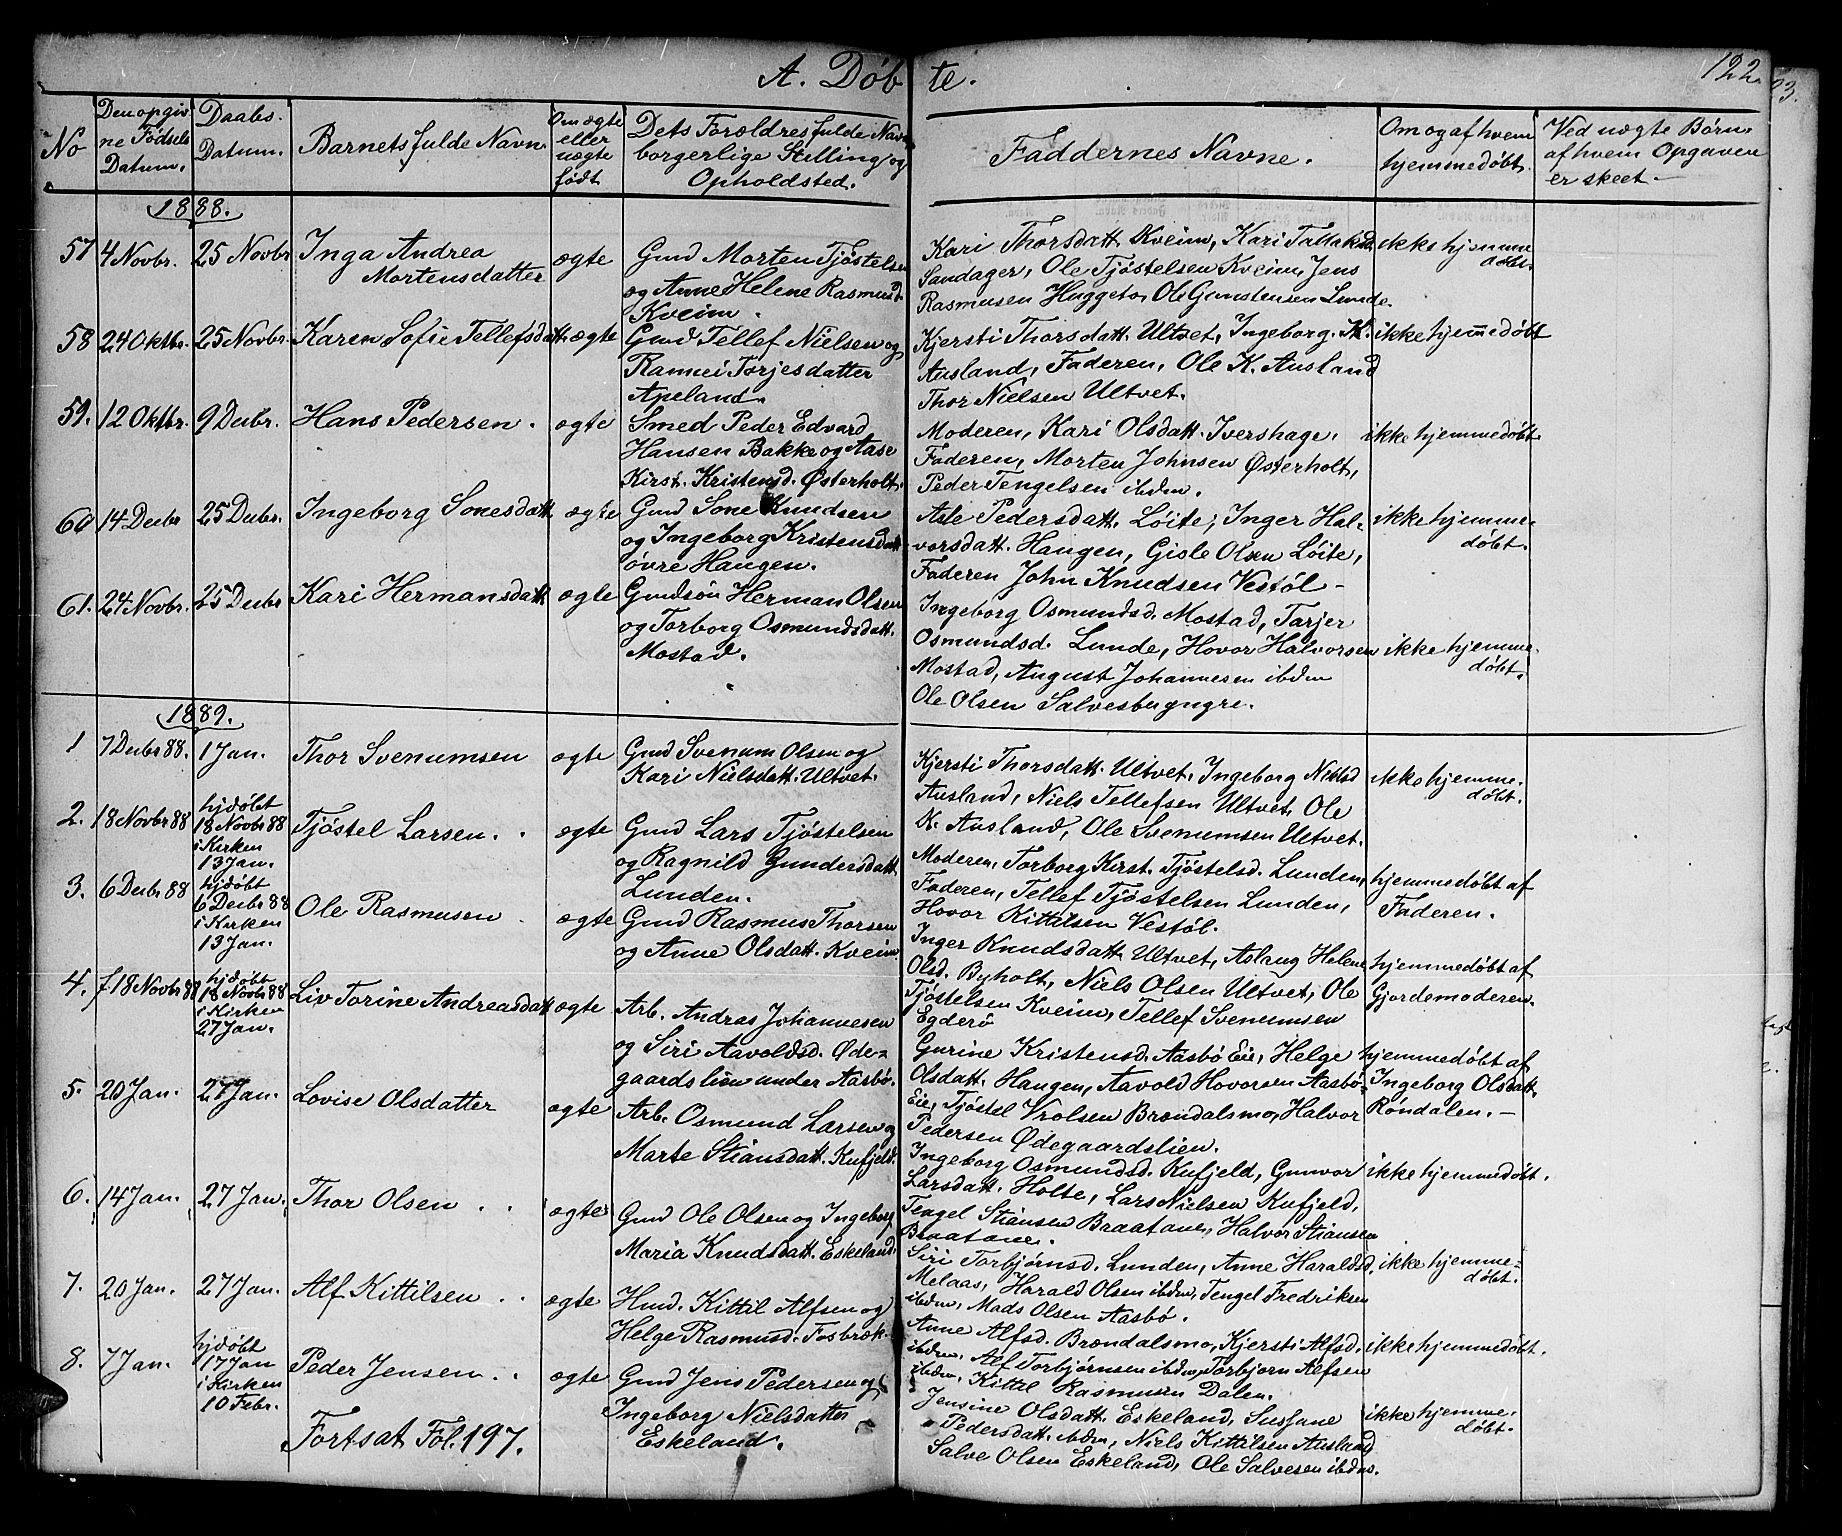 A. Döbte.
122.
No
Den opgivne Fødsels Datum.
Daabs-Datum.
Barnets fulde Navn
Om ægte eller uægte født
Dets Forældres fulde Navn borgerlige Stelling og Opholdsted.
Faddernes Navne.
Om og af hvem hjemmedøbt.
Ved uægte Børn af hvem Opgaven er skeet.
1888.
57 4 Novbr. 25 Novbr Inga Andrea Mortensdatter ægte
Gmd Morten Tjøstelsen
og Anne Helene Rasmusd.
Kveim.
Kari Thorsdatt. Kveim, Kari Tallaksd.
Sandager, Ole Tjøstelsen Kveim, Jens
Rasmusen Huggeto, Ole Gunstensen Lunde.
ikke hjemme
døbt.
58 24 Oktbr. 25 Novbr. Karen Sofie Tellefsdatt. ægte
Gmd Tellef Nielsen og
Ramnei Torjesdatter
Apeland.
Kjersti Thorsdatt. Ultvet, Ingeborg. K.
Ausland, Faderen, Ole K. Ausland
Thor Nielsen Ultvet.
ikke hjemmedøbt
59. 12 Oktbr. 9 Decbr. Hans Pedersen. ægte
Smed Peder Edvard
Hansen Bakke og Aase
Kirst. Kristensd. Østerholt.
Moderen, Kari Olsdatt. Ivershage.
Faderen, Morten Johnsen Østerholt,
Peder Tengelsen ibdm.
ikke hjemmedøbt.
60 14 Decbr 25 Decbr. Ingeborg Sonesdatt. ægte
Gmd Sone Knudsen
og Ingeborg Kristensdatt.
øvre Haugen.
Asle Pedersdatt. Løite, Inger Hal-
vorsdatt. Haugen, Gisle Olsen Løite,
Faderen John Knudsen Vestøl -
ikke hjemme-
døbt.
61. 24 Novbr. 25 Decbr Kari Hermansdatt ægte
Gmdsøn Herman Olsen
og Torborg Osmundsdatt.
Mostad.
Ingeborg Osmundsd. Mostad, Tarjer
Osmundsd. Lunde, Hovor Halvorsen
Mostad, August Johannesen ibdm
Ole Olsen Salvesbergngre.
ikke hjemme-
døbt.
1889.
1 7 Decbr 88. 1 Jan. Thor Svenumsen ægte
Gmd Svenum Olsen og
Kari Nielsdatt. Ultvet.
Kjersti Thorsdatt. Ultvet, Ingeborg Nielsd
Ausland, Niels Tellefsen Ultvet, Ole
K. Ausland, Ole Svenumsen Ultvet.
ikke hjemme-
døbt.
2. 18 Novbr 88 hjdøbt 18 Novbr 88 i Kirken 13 Jan. Tjöstel Larsen. ægte
Gmd Lars Tjöstelsen
og Ragnild Gundersdatt
Lunden.
Moderen, Torborg Kirst. Tjöstelsd. Lunden,
Faderen, Tellef Tjöstelsen Lunden,
Hovor Kittilsen Vestøl.
hjemmedøbt af
Faderen.
3. 6 Decbr 88 hjdøbt 6 Decbr 88 i Kirken 13 Jan. Ole Rasmusen ægte
Gmd Rasmus Thorsen
og Anne Olsdatt. Kveim
Inger Knudsdatt. Ultvet, Aslaug Helene
Olsd. Byholt, Niels Olsen Ultvet, Ole
Tjöstelsen Kveim, Tellef Svenumsen
Egderø
hjemmedøbt af
Gjordemoderen.
4. 18 Novbr 88 hjdøbt 18 Novbr 88 i Kirken 27 Jan. Liv Torine Andreasdatt ægte
Arb. Andras Johannesen
og Siri Aavoldsd. Øde-
gaardslien under Aasbø.
Gurine Kristensd. Aasbø Eie, Helge
Olsdatt. Haugen, Aavold Hovorsen Aasbø-
Eie, Tjöstel Vrolsen Brøndalsmo, Halvor
Pedersen Ødegaardslien.
hjemmedøbt af
Ingeborg Olsdatt.
Röndalen. -
5. 20 Jan. 27 Jan. Lovise Olsdatter ægte
Arb. Osmund Larsen og
Marte Stiansdatt. Kufjeld.
Ingeborg Osmundsd. Kufjeld, Gunvor
Larsdatt. Holte, Lars Nielsen Kufjeld,
Tengel Stiansen Braatane, Halvor Stiansen
Braatane.
ikke hjemmedøbt.
6. 14 Jan. 27 Jan. Thor Olsen ægte
Gmd Ole Olsen og Ingeborg
Maria Knudsdatt. Eskeland.
Siri Torbjørnsd. Lunden, Anne Haraldsd.
Melaas, Harald Olsen ibdm, Tengel Fredriksen
ibdm, Mads Olsen Aasbø.
ikke hjemme-
døbt.
7. 20 Jan. 27 Jan. Alf Kittilsen ægte
Hmd. Kittil Alfsen og
Helge Rasmusd. Fosbræk.
Anne Alfsd. Brøndalsmo, Kjersti Alfsd.
ibdm, Alf Torbjørnsen ibdm, Torbjørn Alfsen
ibdm, Kittil Rasmusen Dalen.
ikke hjemmedøbt.
8. 7 Jan. hjdøbt 17 Jan i Kirken 10 Febr. Peder Jensen ægte
Gmd Jens Pedersen og
Ingeborg Nielsdatter
Eskeland.
Jensine Olsdatt. Eskeland, Susjane
Pedersdatt. ibdm, Niels Kittilsen Ausland
Salve Olsen Eskeland, Ole Salvesen ibdm.
ikke hjemme-
døbt.
Fortsat Fol. 197.